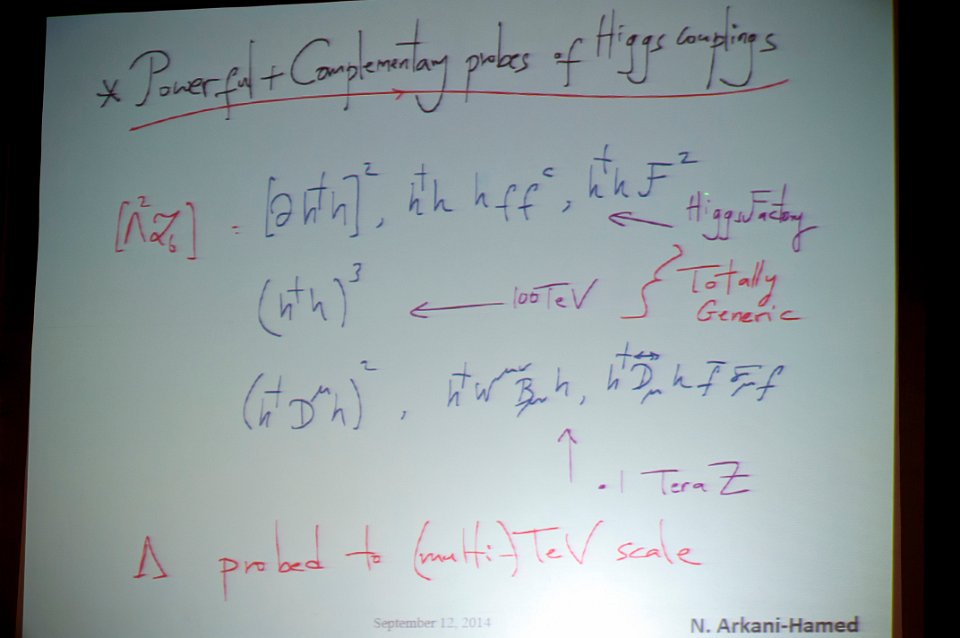 * Powerful + Complementary probes of Higgs couplings
[Λ² ℒ₆] = [∂ h†h]², h†h h f fᶜ, h†h F² ← Higgs Factory
(h†h)³ ← 100 TeV } Totally Generic
(h† D^μ h)², h† W^μν B_μν h, h† D↔_μ h f̄ σ̄_μ f
↑ .1 Tera Z
Λ probed to (multi-)TeV scale
September 12, 2014 N. Arkani-Hamed